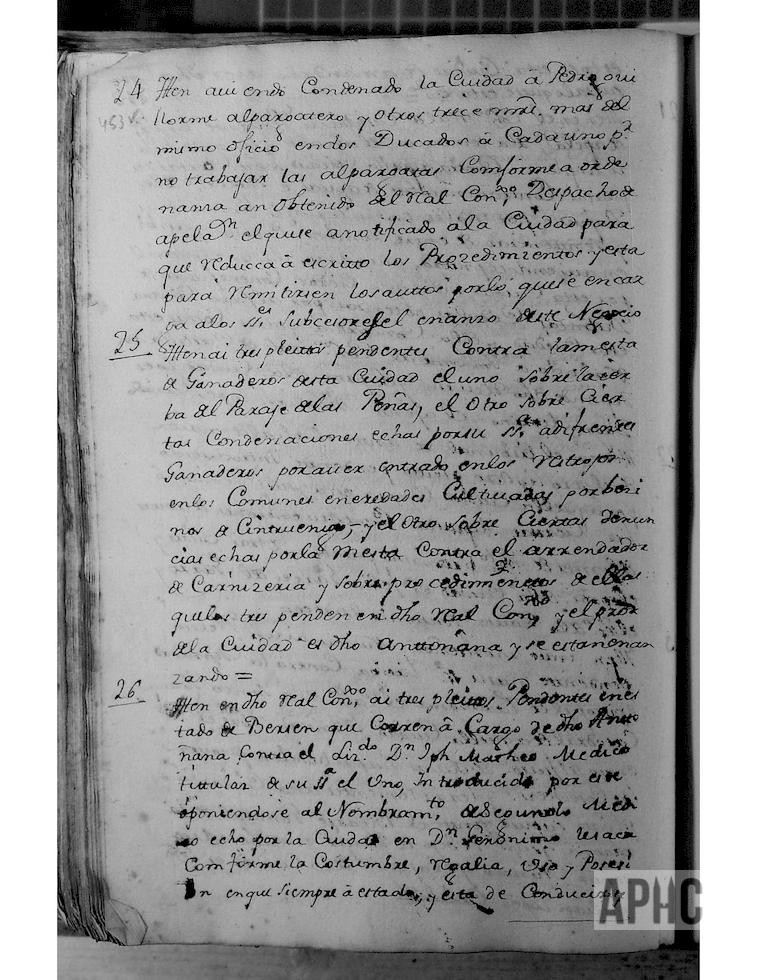 24 Itten auiendo Condenado la Ciudad â Pedro Gui
llorme alpargatero y otros trece mrs. mas del
mismo oficio en dos Ducados â Cada uno pr.
no trabajar las alpargatas Comforme a orde
nanza an obtenido del Real Conso. Despacho de
apelaon. el que se a notificado a la Ciudad para
que Reducca â escritto los Prozedimientos y esta
para Remitirsen los auttos por lo que se encar
ga a los SSes. Subcesores el enanzo deste Negocio
25 Itten ai tres pleittos pendentes Contra la mesta
de Ganaderos desta Ciudad el uno sobre la ier
ba del Paraje de las Peñas, el otro sobre Cier
tas Condenaciones echas por su SSa. a difrentes
Ganaderos por auer entrado en los Rastrojos
en los Comunes en eredades Cultiuadas por beci
nos de Cintruenigo, y el otro sobre Ciertas denun
cias echas por la Mesta Contra el arrendador
de Carnizeria y sobre procedimientos de ellas
que los tres penden en dho Real Conso. y el pror.
de la Ciudad es dho Anttoñana y se estan enan
zando =
26. Itten en dho Real Conso. ai tres pleittos Pendentes en es
tado de Bersen que Corren â Cargo de dho Antto
ñana Contra el Lizdo. Dn. Iph Matheo Medico
tittular de su SSa. el Uno, Introducido por este
oponiendose al Nombramto. de Segundo Medi
co echo por la Ciudad en Dn. Geronimo
Comforme la Costumbre, Regalia, Uso y Posesi
on en que siempre â estado, y esta de Conducirse
453v.
APHC